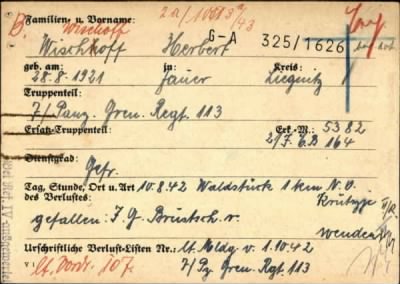 B. Wischoff 2a/10013a/43
Familien- u. Vorname:
Wischhoff Herbert G-A 325/1626
geb. am: in: Kreis:
28.8.1921 Jauer Liegnitz
Truppenteil:
7/Panz. Gren. Regt. 113
Ersatz-Truppenteil: Erk.-M.: 5382
2/J.E.B 164
Dienstgrad: Gefr.
Tag, Stunde, Ort u. Art 10.8.42 Waldstück 1 km N.O.
des Verlustes:
gefallen: J.G. Brustsch. v.
wenden
Urschriftliche Verlust-Listen Nr.: lt. Mldg v. 1.10.42
lt. Vordr. 107. 7/Pz Gren. Regt. 113